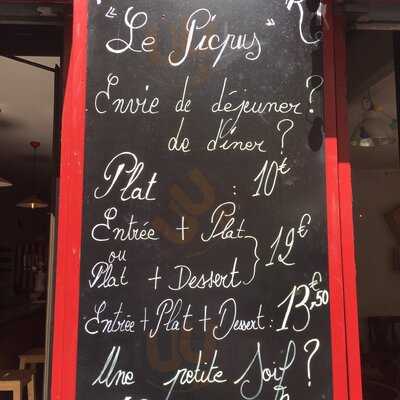 "Le Picpus"
Envie de déjeuner ?
de dîner ?
Plat : 10€
Entrée + Plat
ou
Plat + Dessert
12€
Entrée + Plat + Dessert : 13€,50
Une petite Soif ?